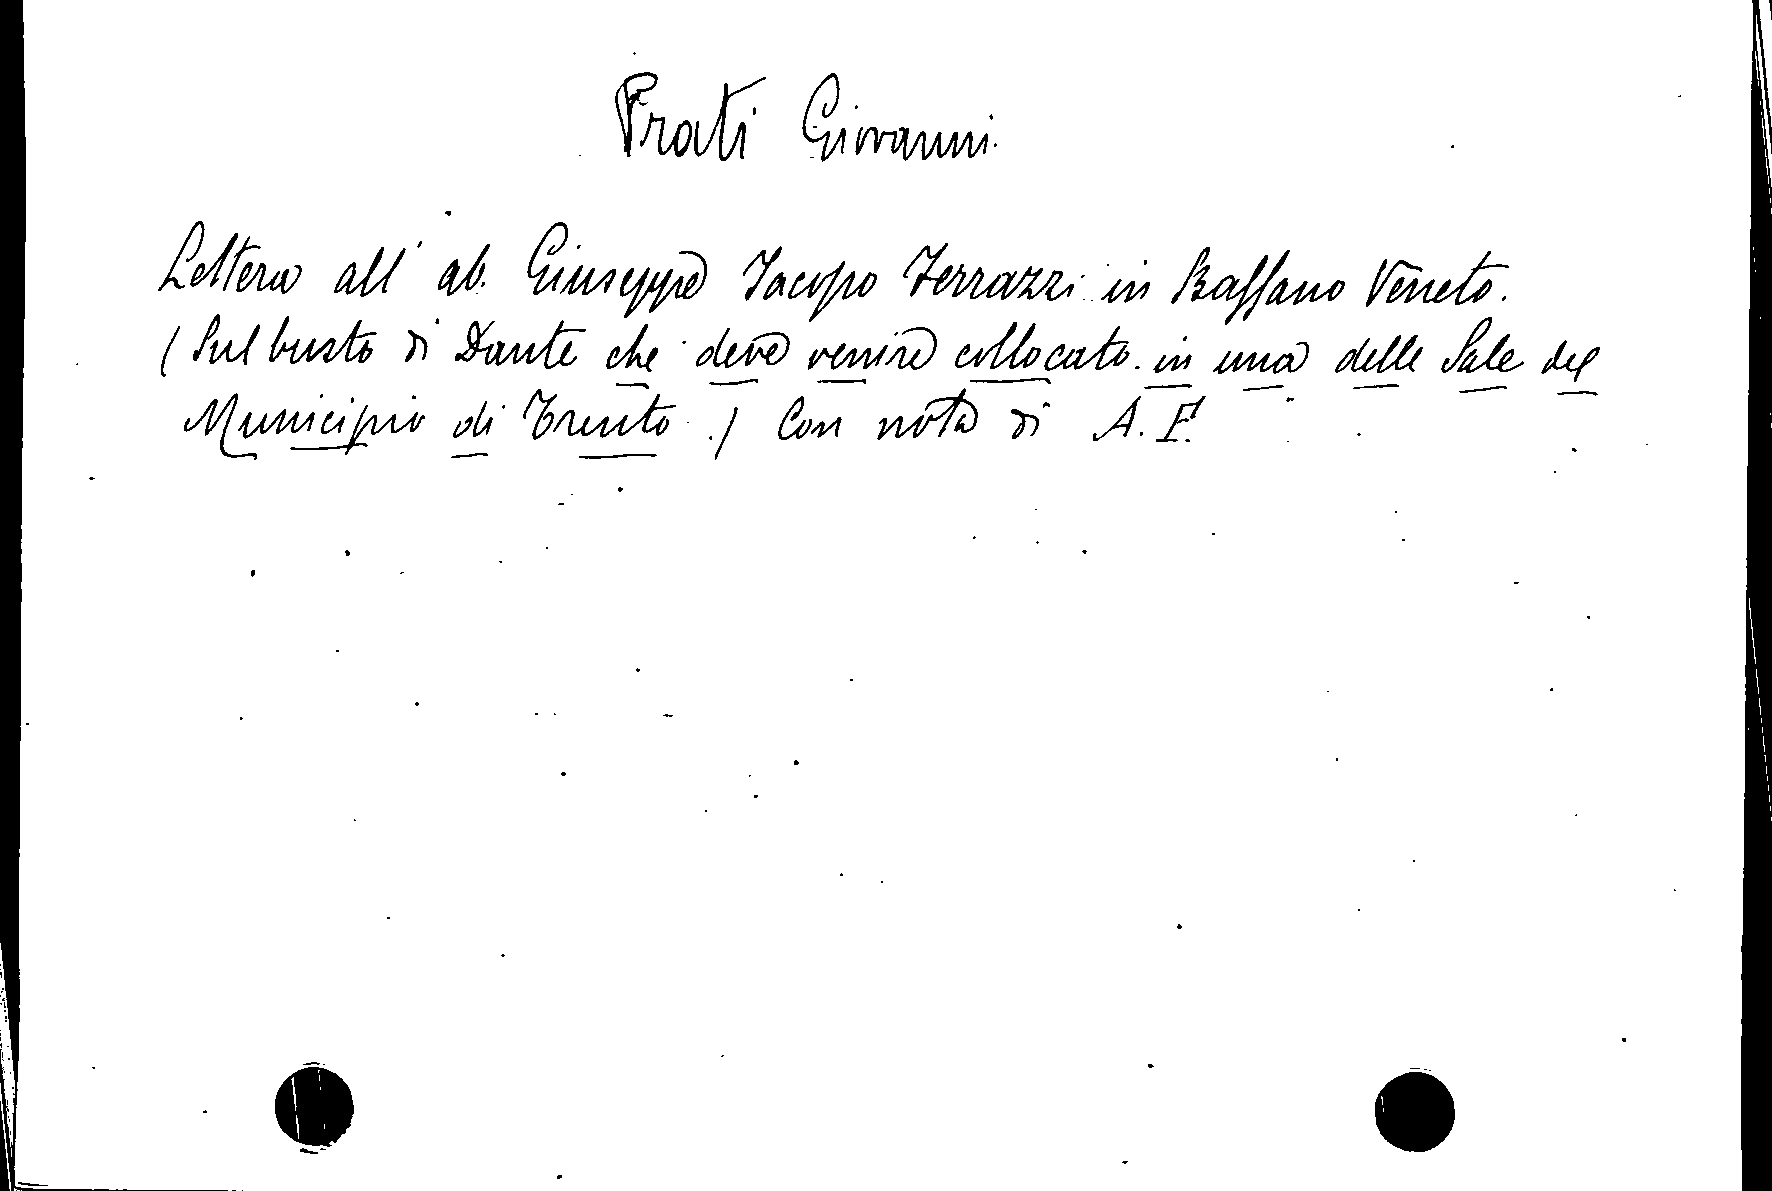 Prati Giovanni.
Lettera all' ab. Giuseppe Jacopo Ferrazzi in Bassano Veneto.
(Sul busto di Dante che deve venire collocato in una delle Sale del
Municipio di Trento.) Con nota di A. F.